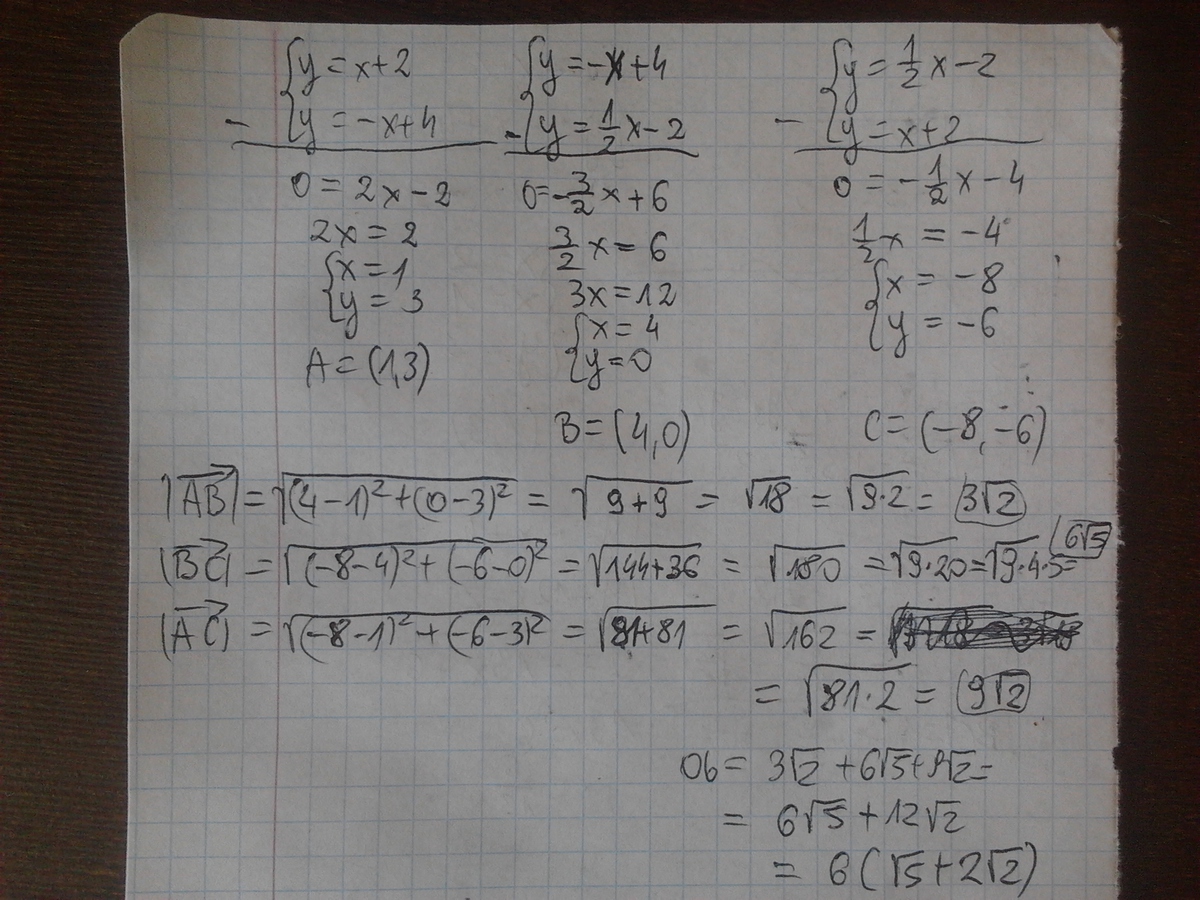 y = x+2
y = -x+4
0 = 2x-2
2x = 2
x = 1
y = 3
A = (1,3)
y = -x+4
y = 1/2 x-2
0 = -3/2 x+6
3/2 x = 6
3x = 12
x = 4
y = 0
B = (4,0)
y = 1/2 x-2
y = x+2
0 = -1/2 x-4
1/2 x = -4
x = -8
y = -6
C = (-8,-6)
|AB| = √(4-1)²+(0-3)² = √9+9 = √18 = √9·2 = 3√2
|BC| = √(-8-4)²+(-6-0)² = √144+36 = √180 = √9·20 = √9·4·5 = 6√5
|AC| = √(-8-1)²+(-6-3)² = √81+81 = √162 =
= √81·2 = 9√2
Ob = 3√2+6√5+9√2 =
= 6√5+12√2
= 6(√5+2√2)